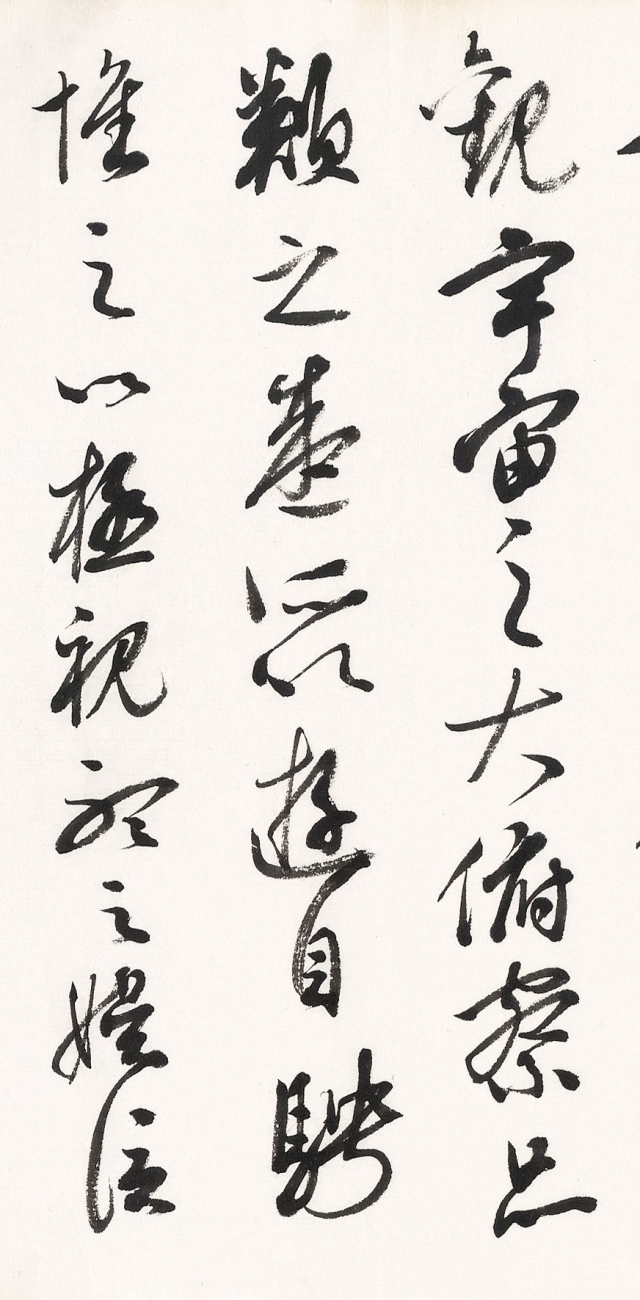 觀宇宙之大俯察品
類之盛所以遊目騁
懷足以極視聽之娛信